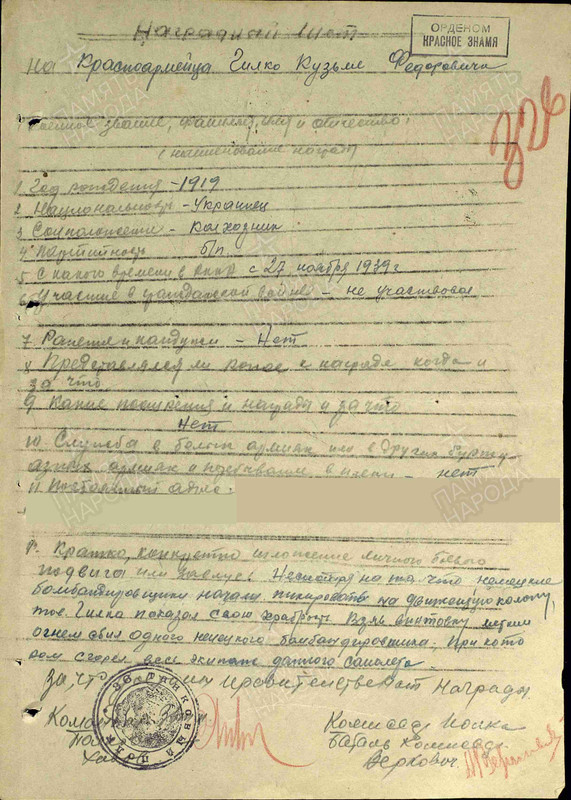 Наградной лист
ОРДЕНОМ
КРАСНОЕ ЗНАМЯ
на Красноармейца Гилко Кузьме Федоровичи
326
Военное звание, фамилия, имя и отчество,
(наименование награды)
1 Год рождения - 1919
2 Национальность - Украинец
3 Соцположение - Колхозник
4 Партийность б/п
5 С какого времени в РККА с 27 ноября 1939 г
6 Участие в гражданской войне - не участвовал
7 Ранения и контузии - Нет
8 Представлялся ли ранее к награде когда и
за что
9 Какие поощрения и награды и за что
Нет
10 Служба в белой армии или в других буржу-
азных армиях и пребывание в плену - нет
11 Постоянный адрес -
Кратко, конкретно изложение личного боевого
подвига или заслуг: Несмотря на то что немецкие
бомбандировщики начали пикировать на движущую колону,
тов. Гилка показал свою храбрость. Взяв винтовку метким
огнем сбил одного немецкого бомбандировщика. При кото
ром сгорел весь экипаж данного самолета.
За что Правительственной Награды.
Ком
Комиссар полка
Баталь Комиссар
Беркович
ПАМЯТЬ НАРОДА